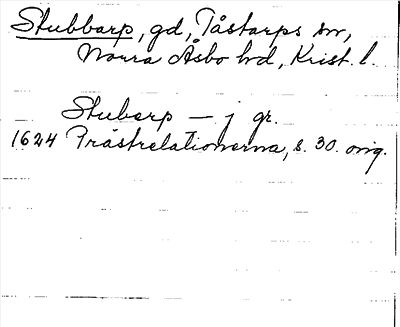 Stubbarp, gd, Tåstarps sn,
Norra Åsbo hd, Krist. l.
Stuberp — j gr.
1624 Prästrelationerna, s. 30. orig.